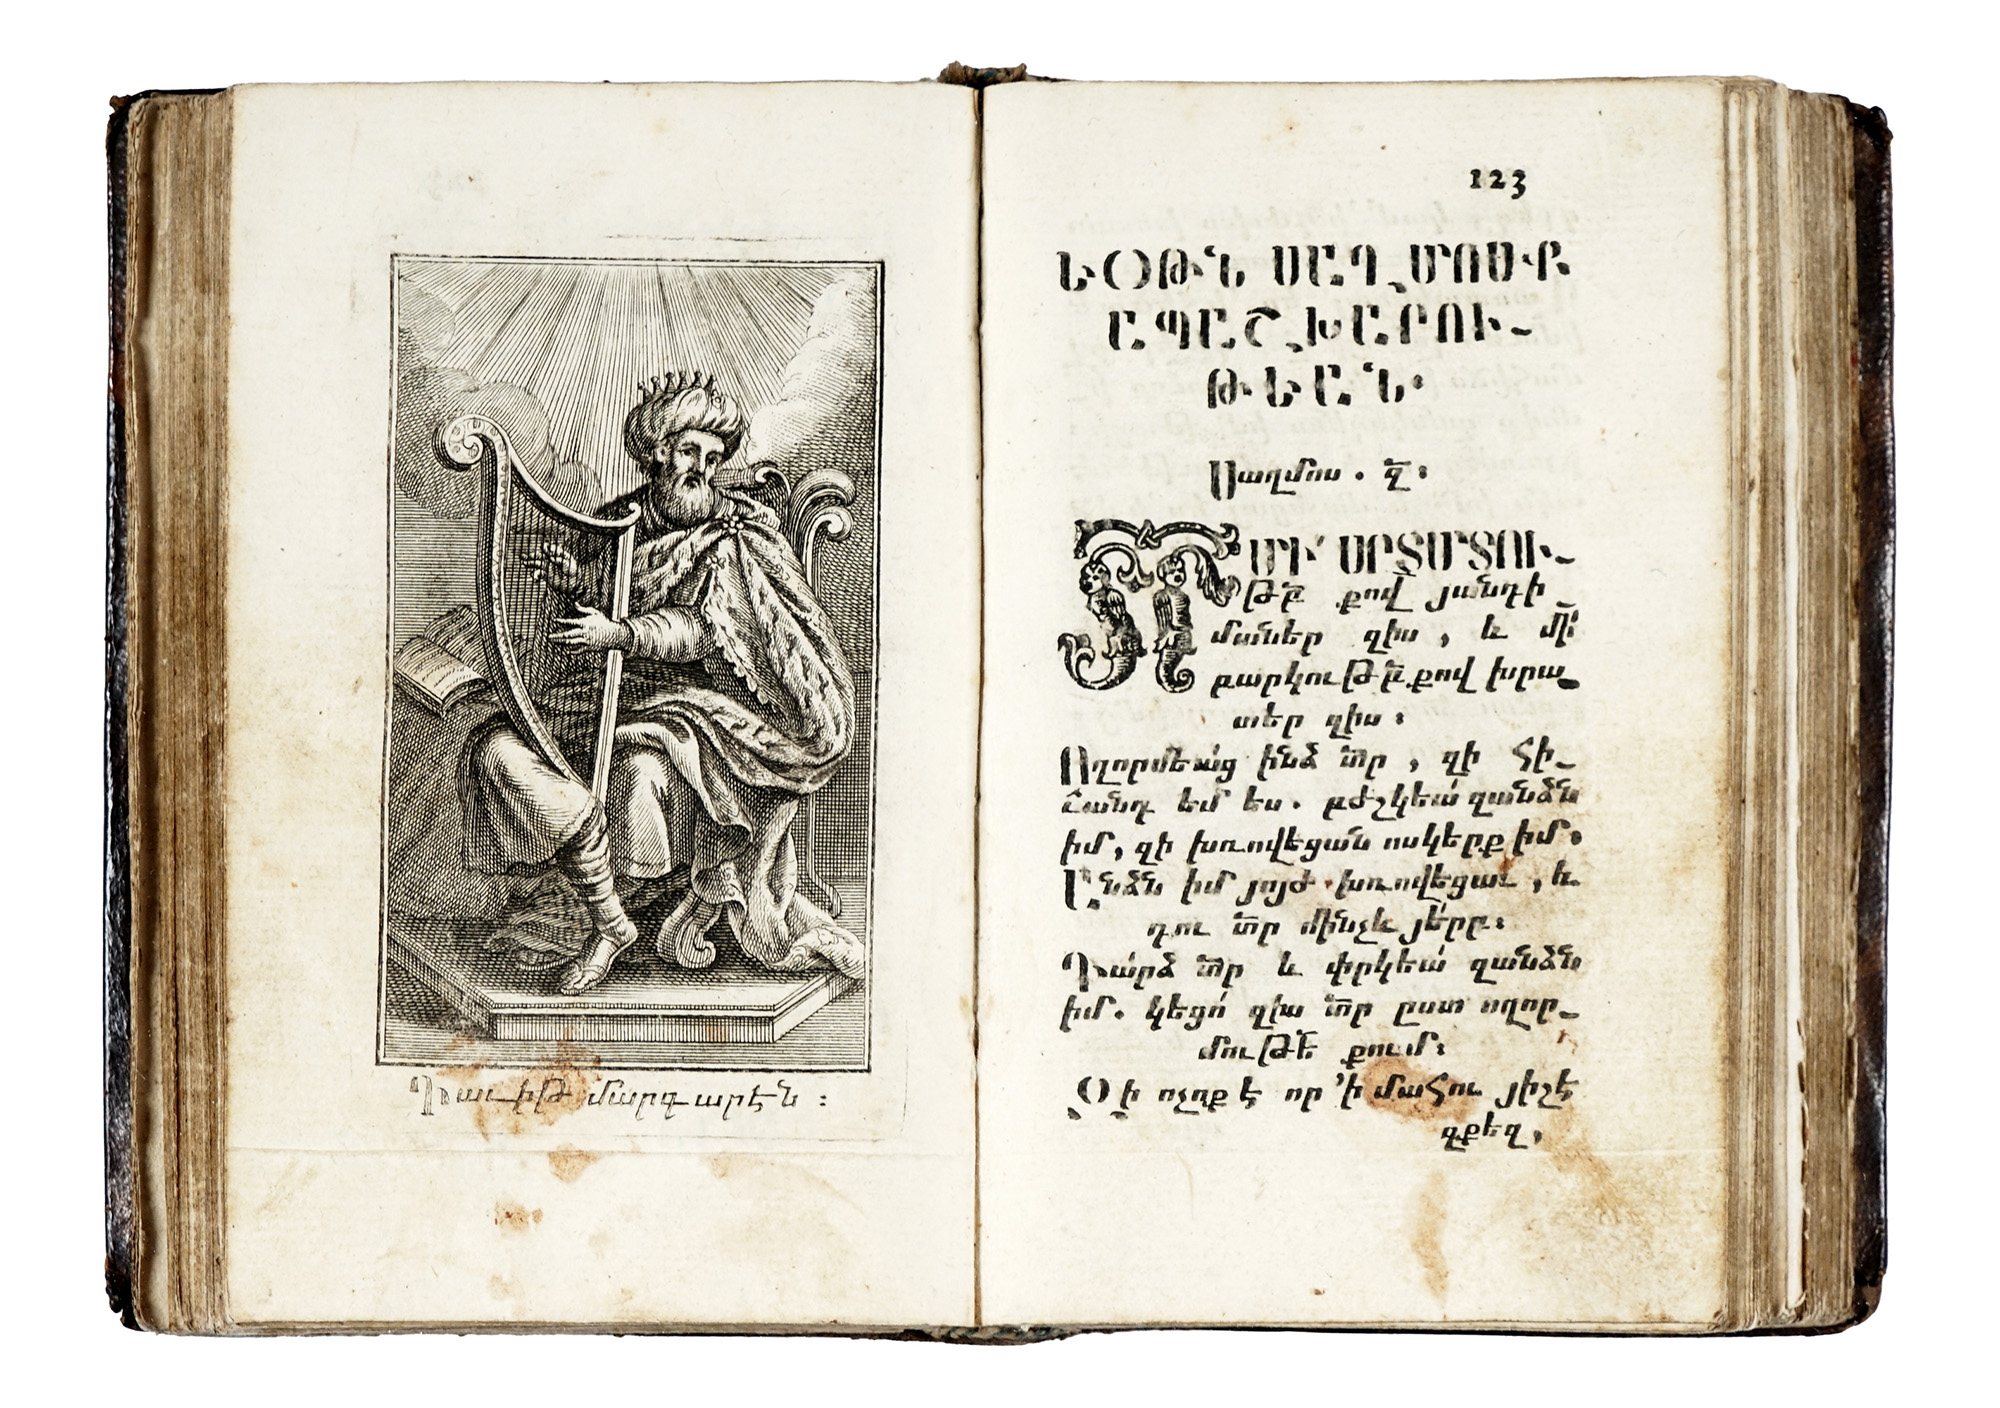 Դաւիթ մարգարէն ։
123
ԵՕԹՆ ՍԱՂՄՈՍՔ
ԱՊԱՇԽԱՐՈՒ֊
ԹԵԱՆ։
Սաղմոս . զ̅։
Տ ՄԻ՛ ՍՐՏՄՏՈՒ֊
թբ̅ քով յանդի
մաներ զիս , և մի՛
բարկութբ̅ քով խրա֊
տեր զիս ։
Ողորմեա՛ց ինձ տ̅ր , զի հի֊
ւանդ եմ ես . բժշկեա՛ զանձն
իմ, զի խռովեցան ոսկերք իմ։
Անձն իմ յոյժ խռովեցաւ , և
դու տ̅ր մինչև յե՛րբ։
Դա՛րձ տ̅ր և փրկեա՛ զանձն
իմ. կեցո՛ զիս տ̅ր ըստ ողոր֊
մութե̅ քում։
Զի ոչոք է որ ՚ի մահու յիշէ
զքեզ,